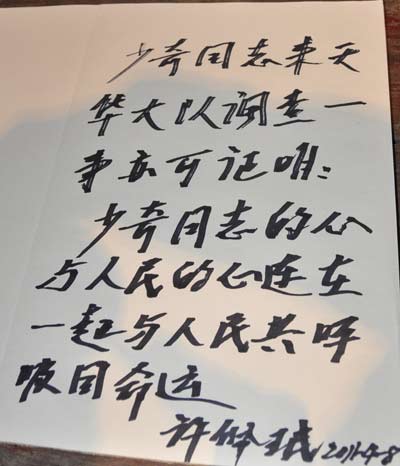 少奇同志来天
华大队调查一
事亦可证明：
少奇同志的心
与人民的心连在
一起与人民共呼
吸同命运
许 2011-4-8